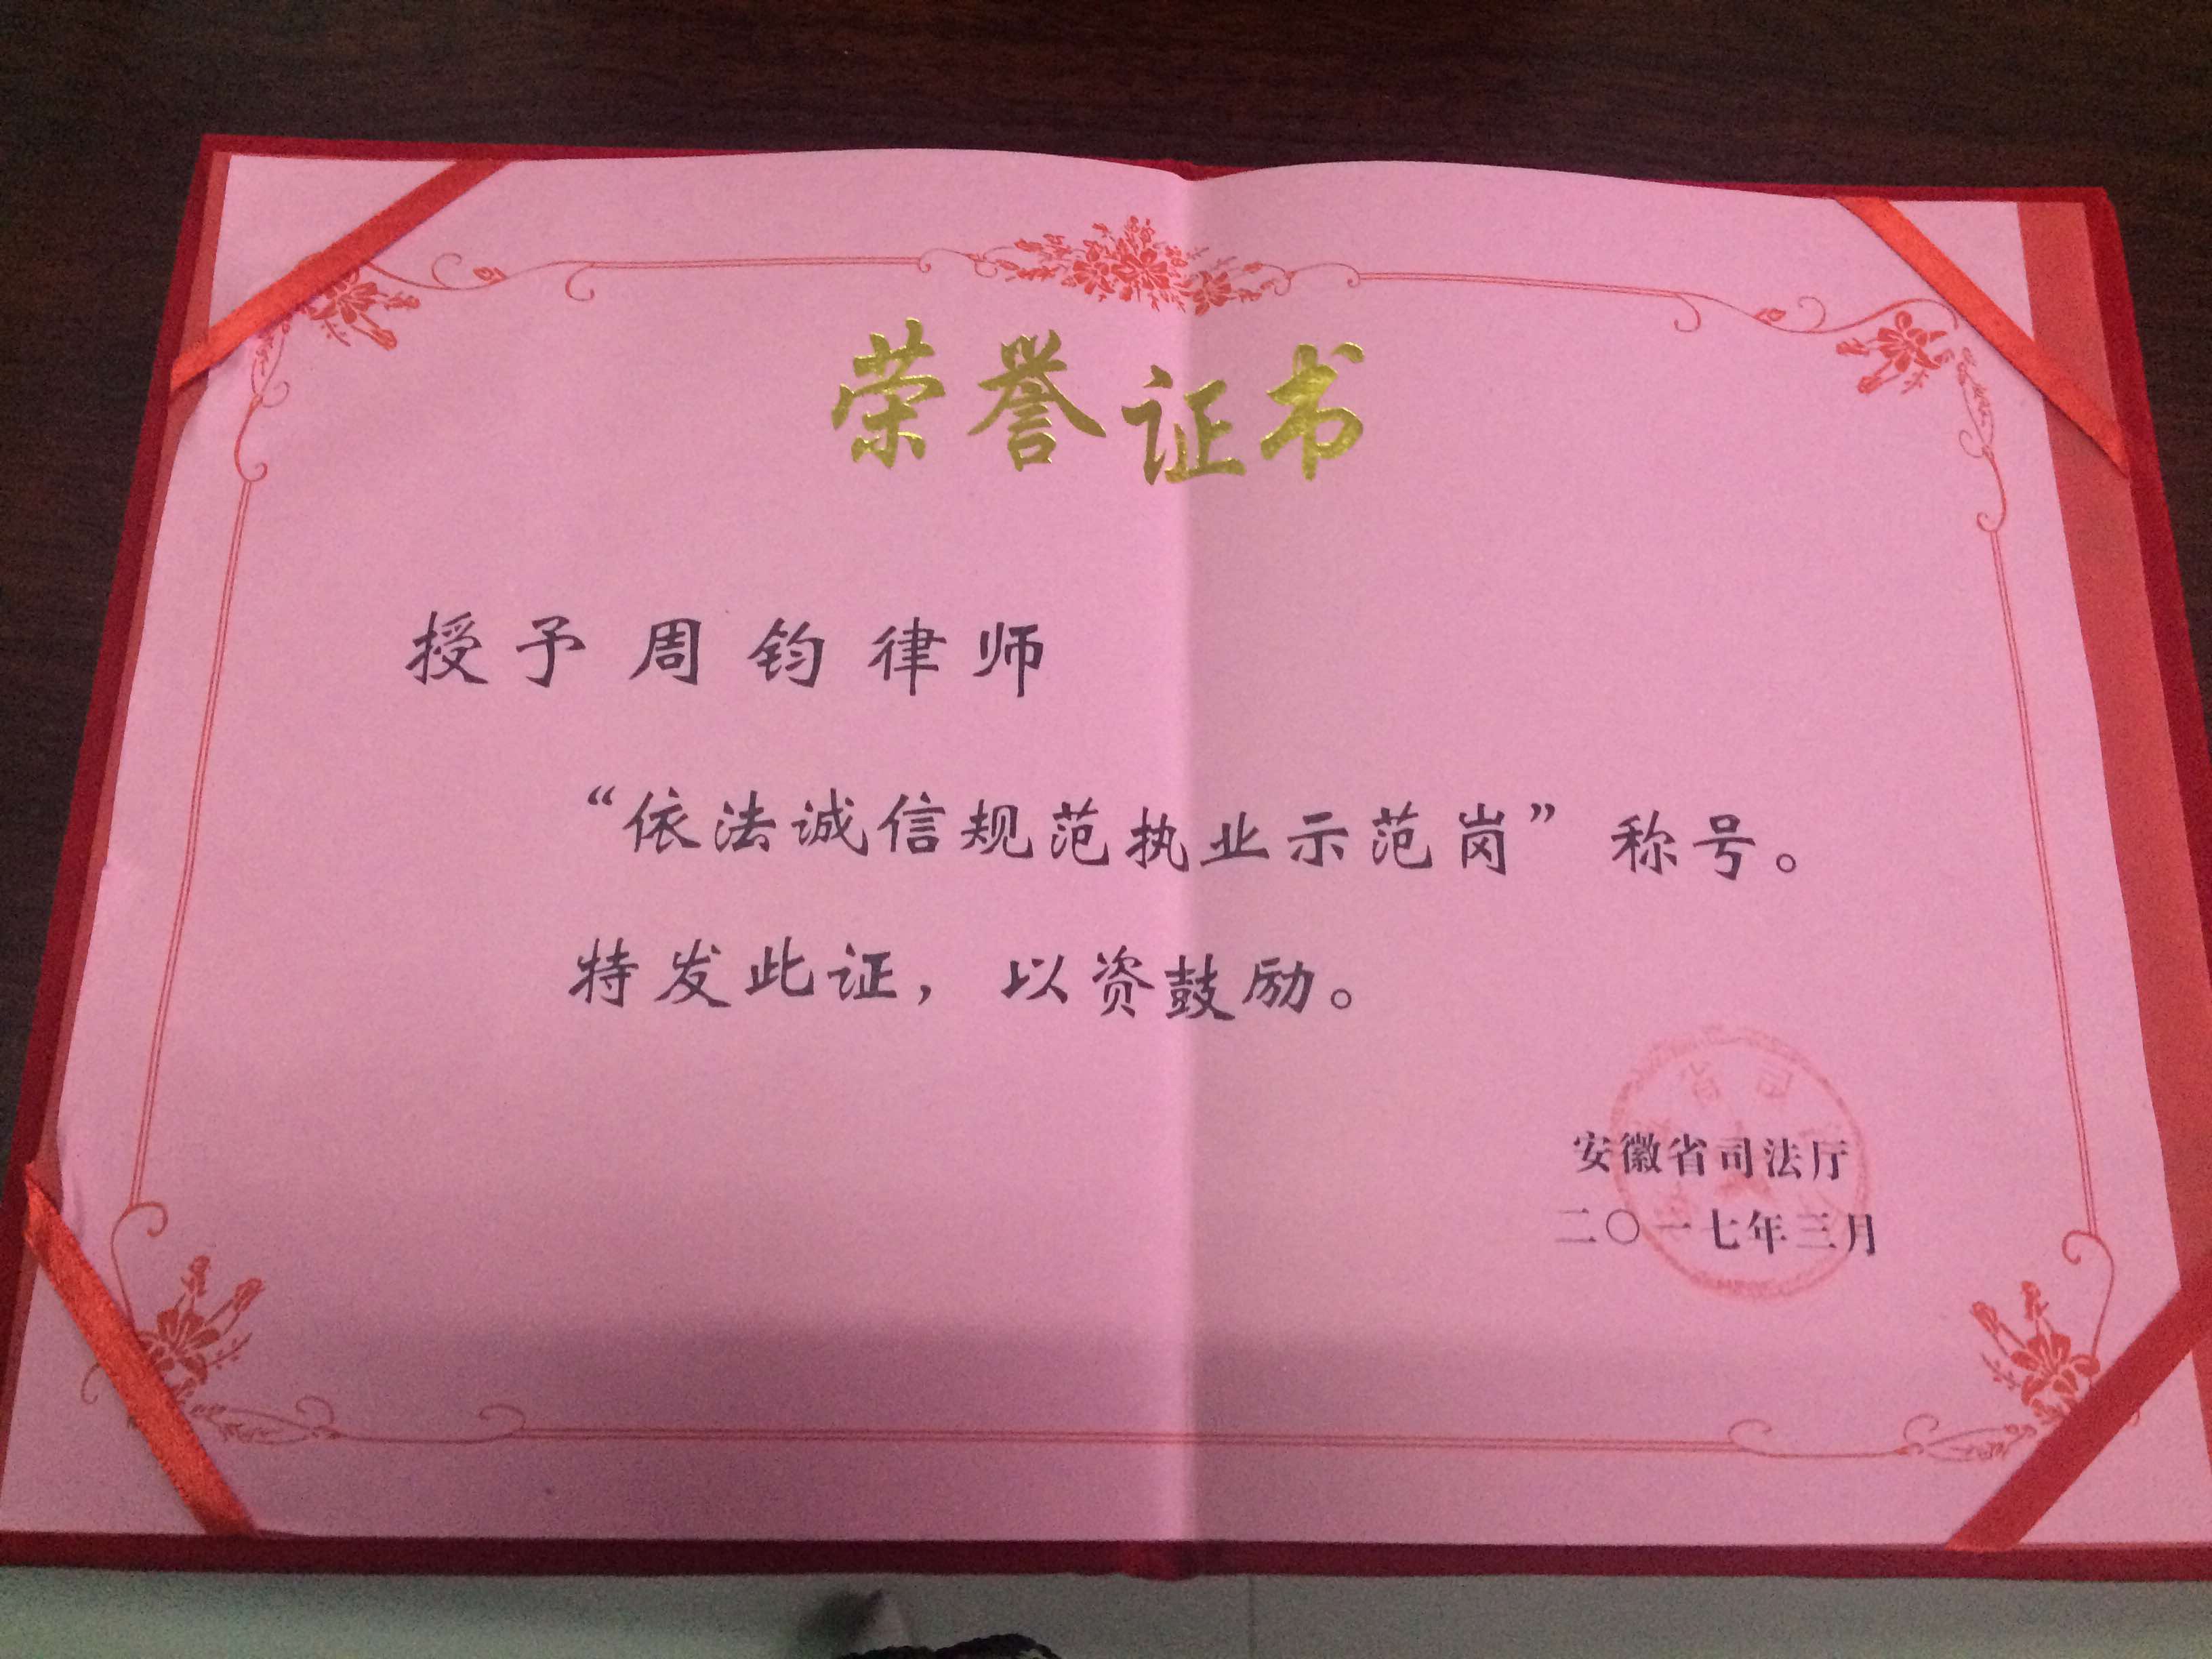 荣誉证书
授予周钧律师
“依法诚信规范执业示范岗”称号。
特发此证，以资鼓励。
安徽省司法厅
二〇一七年三月